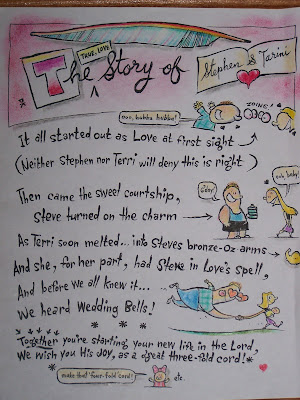 The TRUE-LOVE Story of Stephen & Tarini
ooo, hubba hubba!
BOING!
It all started out as Love at first sight
(Neither Stephen nor Terri will deny this is right)
Then came the sweet courtship,
Steve turned on the charm
ooh, baby!
As Terri soon melted... into Steve's bronze-oz arms
And she, for her part, had Steve in Love's spell,
And before we all knew it...
We heard Wedding Bells!
Together you're starting your new life in the Lord,
We wish you His Joy, as a great three-fold cord!
make that four-fold cord!
etc.